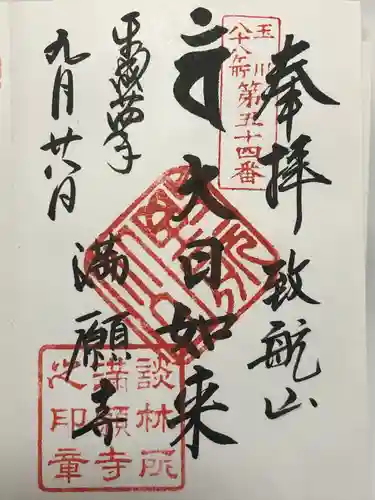 奉拝
致航山
玉川
八十八ケ所
第五十四番
大日如来
満願寺
平成廿四年
九月廿八日
談林所
満願寺
之印章